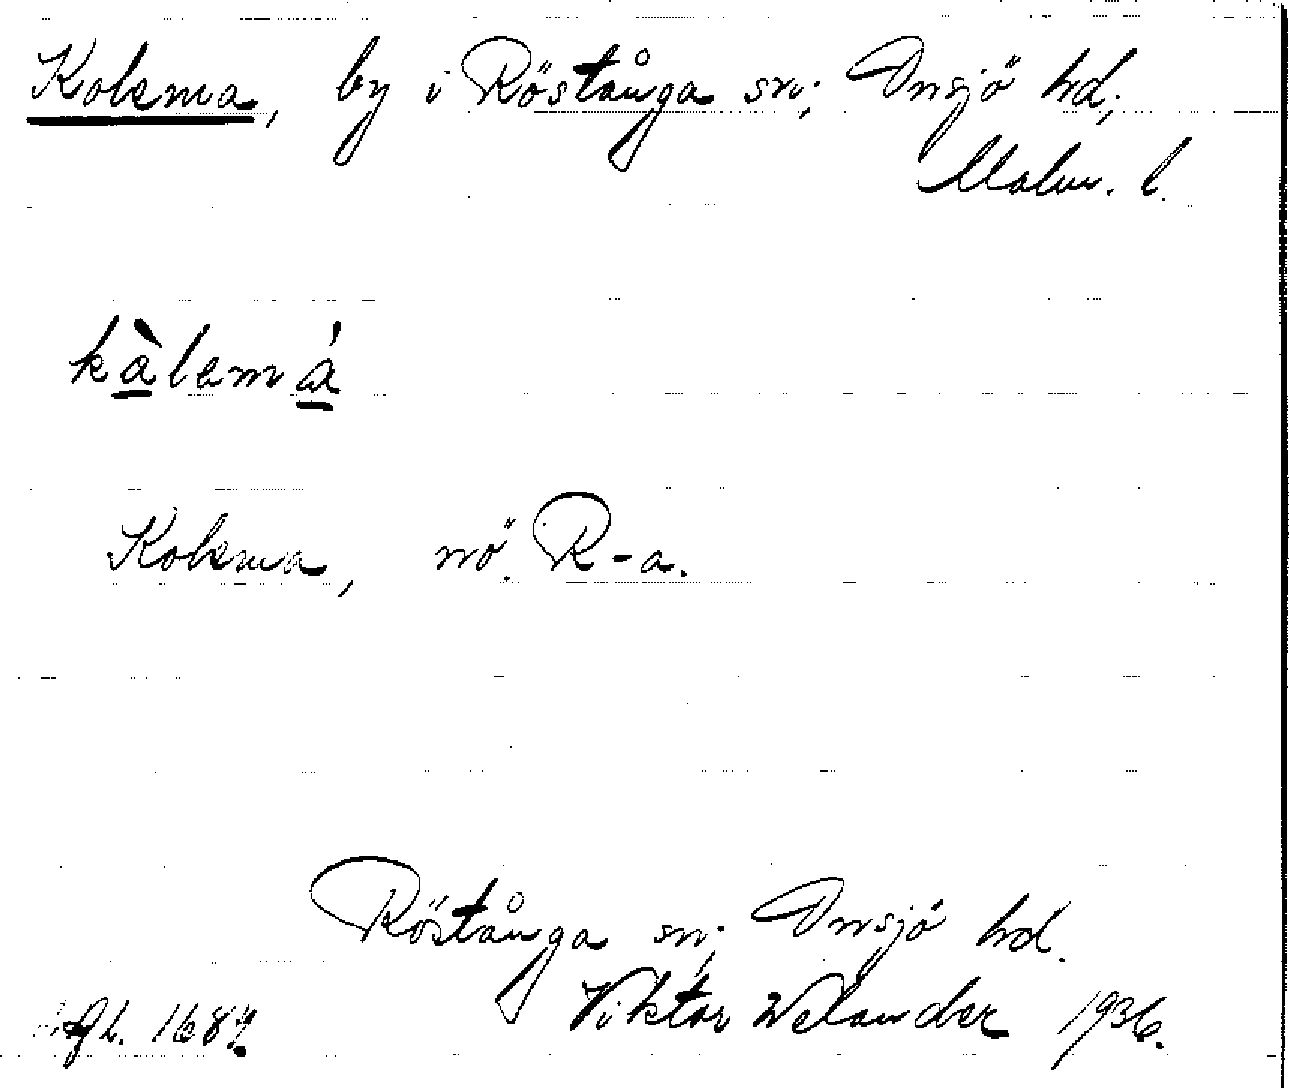 Kolema, by i Röstånga sn; Onsjö hd;
Malm. l.
kàlemá
Kolema, nö. R-a.
Röstånga sn; Onsjö hd.
Viktor Welander 1936.
1687.